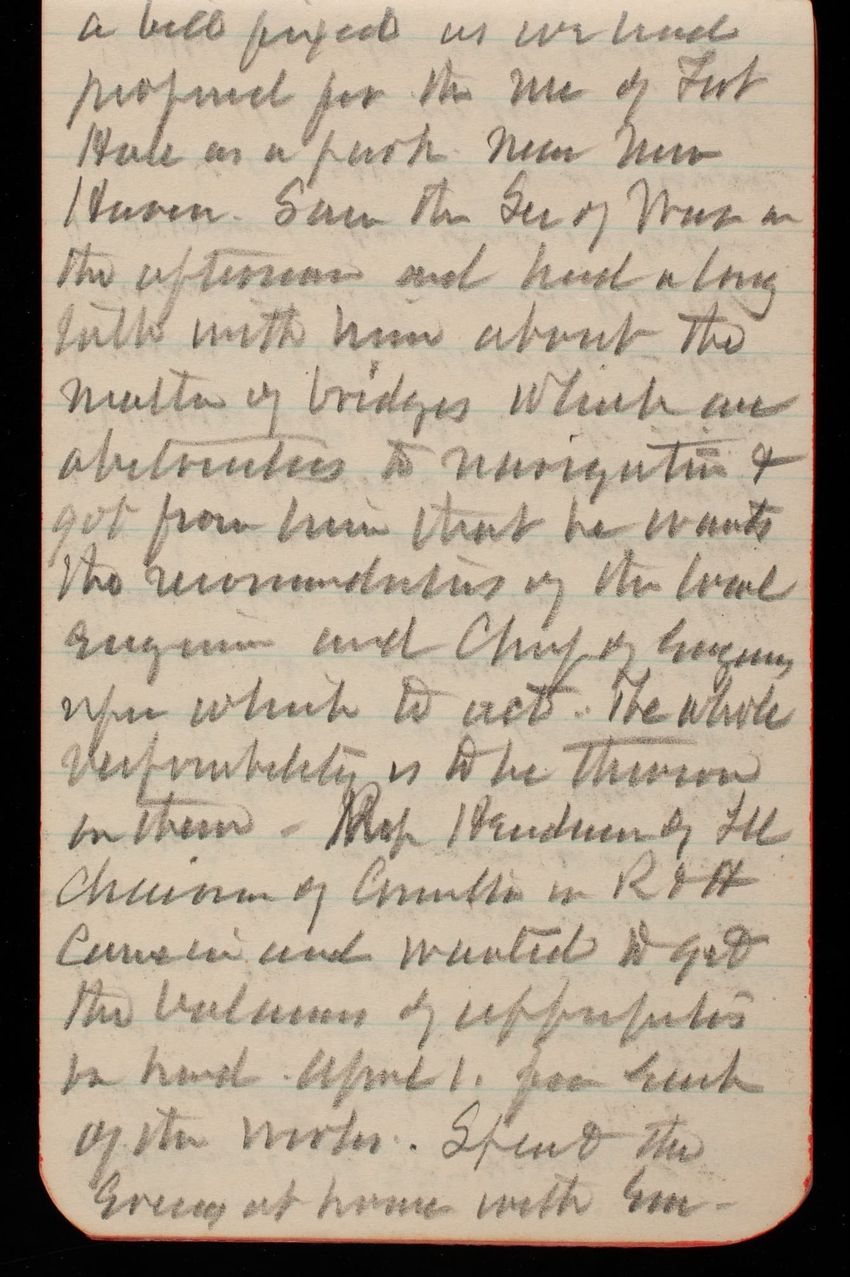 a bill fixed as we had
proposed for the use of Fort
Hale as a park near New
Haven. Saw the Sec of War in
the afternoon and had a long
talk with him about the
matter of bridges which are
obstructions to navigation &
got from him that he wants
the recommendations of the local
engineer and Chief of Engineers
upon which to act. The whole
responsibility is to be thrown
on them - Rep Henderson of Ill
Chairman of Committee on R & H
Came in and wanted to get
the balances of appropriations
on hand April 1. for each
of the works. Spent the
Evening at home with Em-